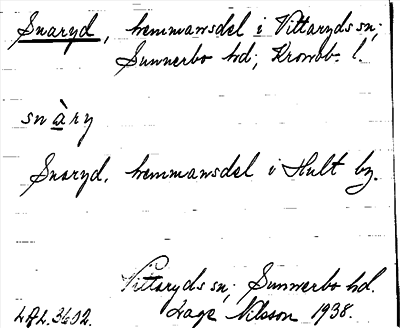 Snaryd, hemmansdel i Vittaryds sn;
Sunnerbo hd; Kronob. l.
snàry
Snaryd, hemmansdel i Hult by.
Vittaryds sn; Sunnerbo hd.
Lage Nilsson 1938.
LAL. 3602.